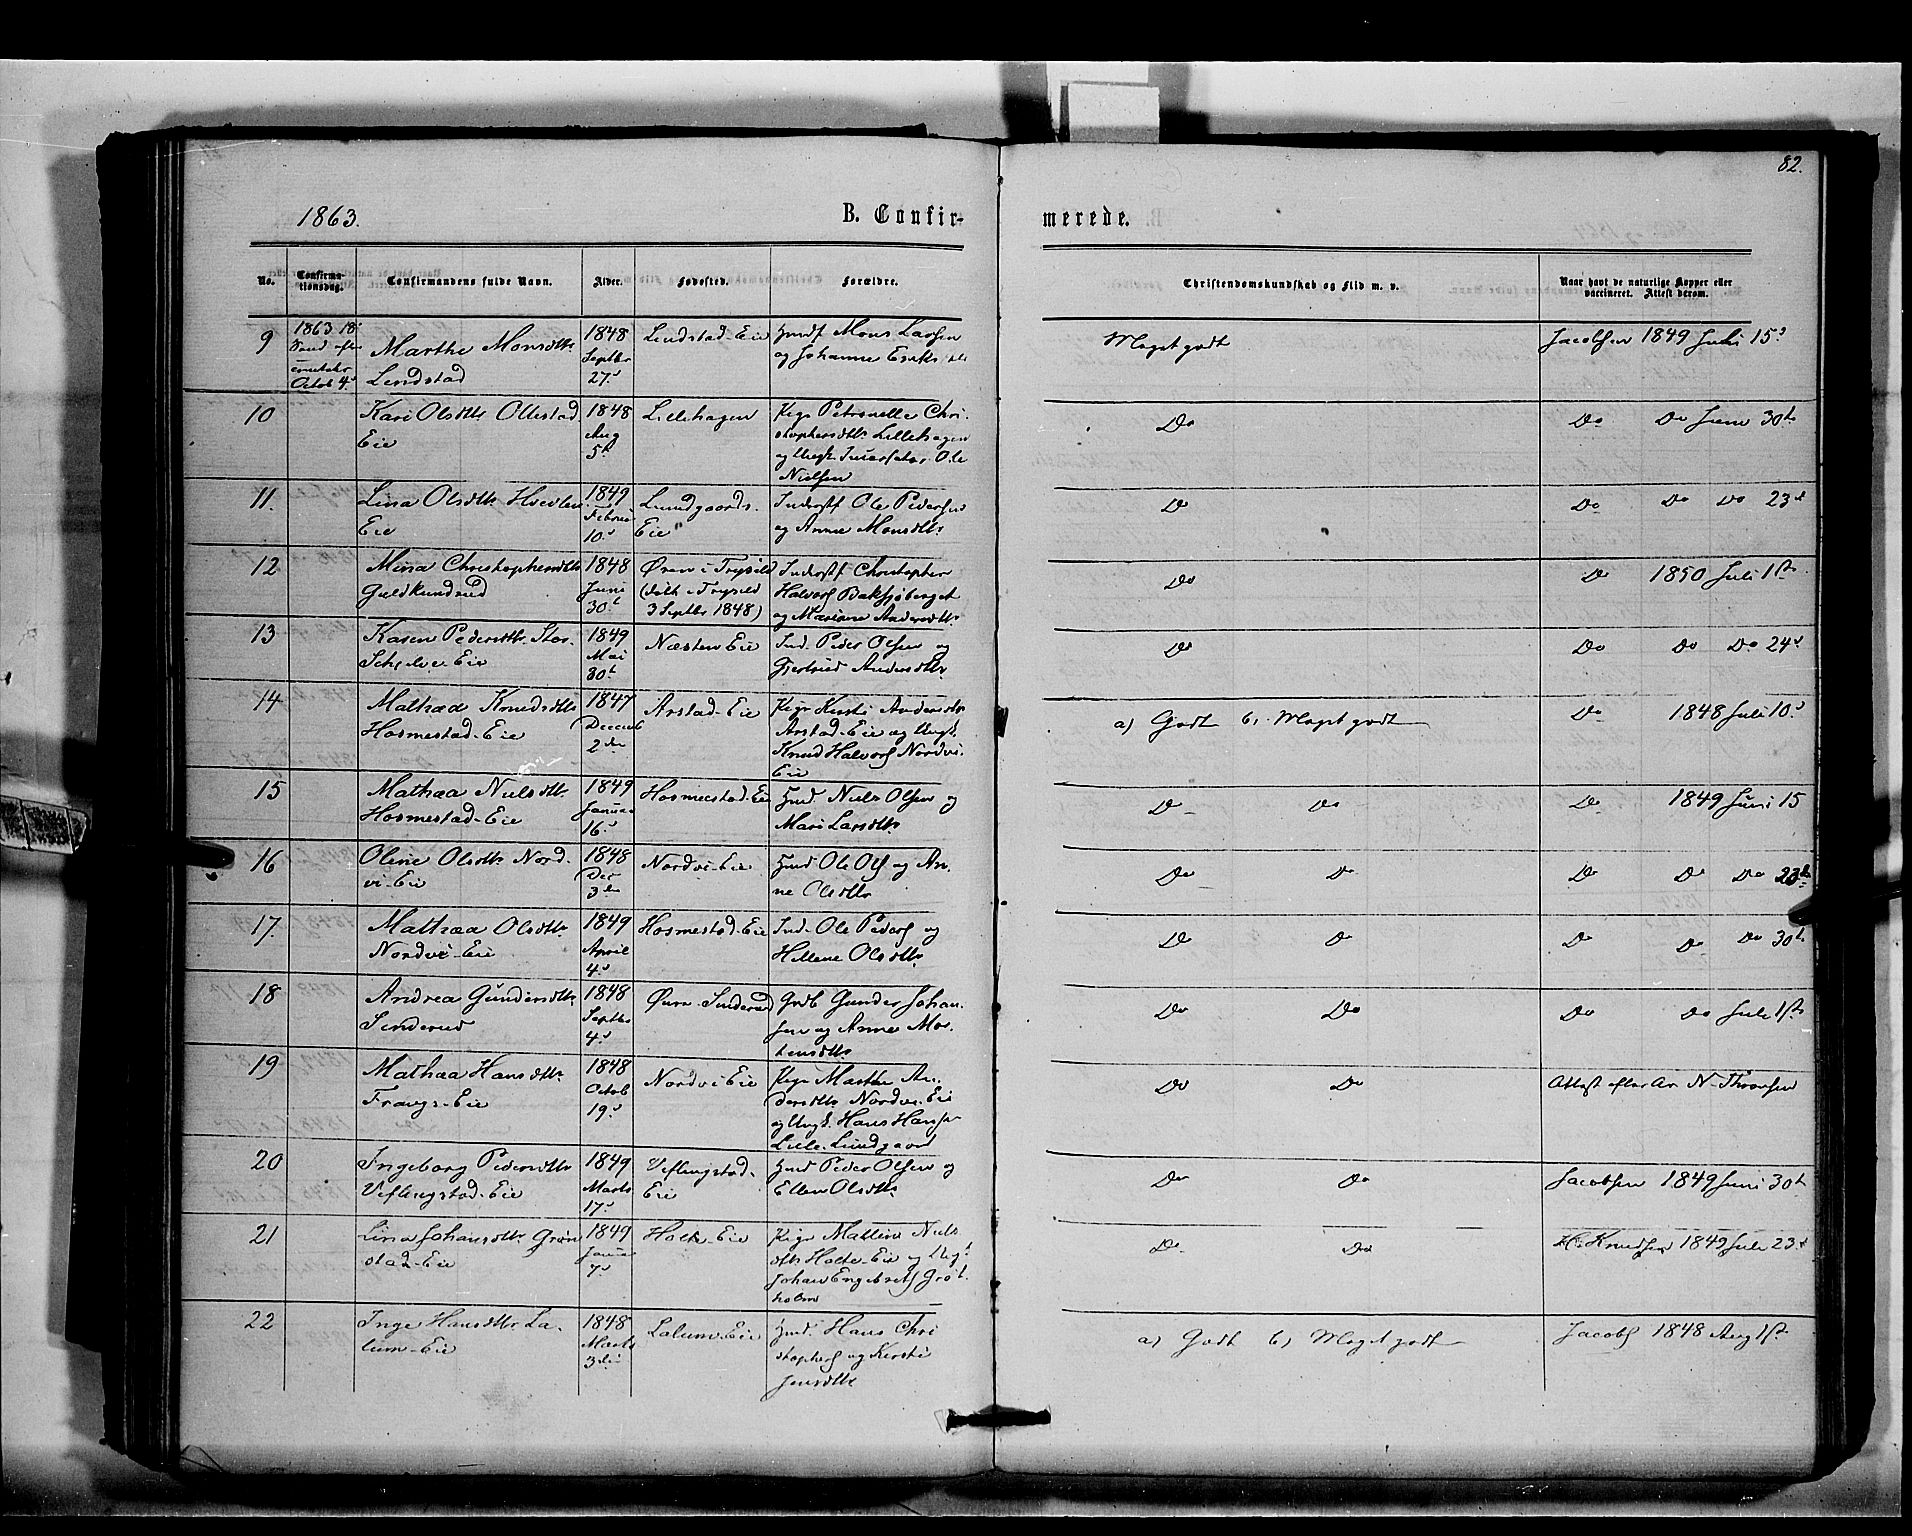 82.
1863.
B. Confir-
merede.
No.
Confirma-
tionsdag.
Confirmandens fulde Navn.
Alder.
Fødested.
Forældre.
Christendomskundskab og Flid m. v.
Naar havt de naturlige Kopper eller
vaccineret. Attest derom.
9
1863 18
Octob 4.
Marthe Monsdtr
Lindstad
1848
Septbr
27
Lindstad-Eie
Huusf Mons Larsen
og Johanne Eriksdtr
Meget godt
Jacobsen 1849 Juli 15
10
Kari Olsdtr Ollestad
Eie
1848
Aug
5t
Lillehagen
Pige Petronelle Chri-
stophersdtr Lillehagen
Ole
Nielsen
Do
Do Do Juni 30te
11.
Lina Olsdtr
Eie
1849
Februar
10
Lundgaards-
Eie
Inderstf Ole Pedersen
og Anne Monsdtr
Do
Do Do Do 23d
12
Mina Christophersdtr
Guldkundrud
1848
Juni
30t
Øren i Trysild
(døbt i Trysild
3 Septbr 1848)
Inderstf Christopher
Halvors Baksjøberget
og Mariane Andersdtr
Do
Do 1850 Juli 1ste
13
Karen Pedersdtr Stor-
Schjelve Eie
1849
Mai
30t
Næsten Eie
Ind. Peder Olsen og
Gjertrud Andersdtr
Do
Do Do Do 24
14
Mathea Knudsdtr
Hosmestad-Eie
1847
Decemb
2den
Arstad-Eie
Pige Kersti Andersdtr
Arstad-Eie og Ungk.
Knud Halvors Nordvi-
Eie
a) Godt b) Meget godt
Do 1848 Juli 10
15
Mathea Nielsdtr
Hosmestad-Eie
1849
Januar
16
Hosmestad-Eie
Huusm. Niels Olsen og
Mari Larsdtr
Do Do
Do 1849 Juni 15
16
Oline Olsdtr Nord-
vi-Eie
1848
Dec
3de
Nordvi-Eie
Huusm Ole Ols og An-
ne Olsdtr
Do Do
Do Do Do 23d
17.
Mathea Olsdtr
Nordvi-Eie
1849
April
4
Hosmestad-Eie
Ind. Ole Peders og
Hellene Olsdtr
Do Do
Do Do Do 30te
18
Andrea Gundersdtr
Sinderud
1848
Septbr
4
Øvre-Sinderud
Grdb Gunder Johan-
sen og Anne Mor-
tensdtr
Do Do
Do Do Juli 1ste
19
Mathea Hansdtr
Frangs-Eie
1848
Octob
19
Nordvi Eie
Pige Marthe An-
dersdtr Nordvi-Eie
og Ungk. Hans Hansen
Lille-Lundgaard
Do Do
Attest efter Ar N. Thronsen
20
Ingeborg Pedersdtr
Veflingstad-Eie
1849
Marts
17
Veflingstad-
Eie
Huusm Peder Olsen og
Ellen Olsdtr
Do Do
Jacobsen 1849 Juni 30t
21
Lina Johansdtr Grøn
stad-Eie
1849
Januar
7
Holte-Eie
Pige Mathea Niels
dtr Holte-Eie og Ungk
Johan Engebrets Grøt-
holm
Do Do
H. Knudsen 1849 Juli 23
22
Inge Hansdtr La-
lum-Eie
1848
Marts
3die
Lalum-Eie
Huusm. Hans Chri
stophers og Kersti
Jensdtr
a) Godt b) Meget godt
Jacobs 1848 Aug 1ste